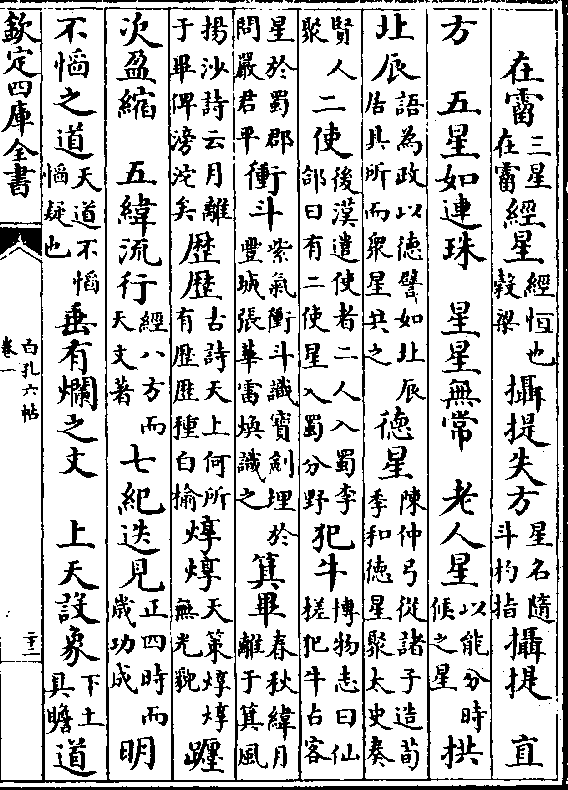 在霤三星在霤經星經恒也穀梁攝提失方星名隨斗杓指攝提 直
方 五星如連珠 星星無常 老人星以能分時候之星拱
北辰語為政以德譬如北辰居其所而衆星共之德星陳仲弓從諸子造荀季和德星聚太史奏
賢人聚二使後漢遣使者二人入蜀李郃曰有二使星入蜀分野犯牛博物志曰仙槎犯牛占客
星於蜀郡問嚴君平衝斗紫氣衝斗識寳劍埋於豐城張華雷煥識之箕畢春秋緯月離于箕風
揚沙詩云月離于畢俾滂沱矣歴歴古詩天上何所有歴歴種白榆焞焞天策焞焞無光貌躔
次盈縮 五緯流行經八方而天文著七紀迭見正四時而歲功成明
不慆之道天道不慆慆疑也垂有爛之文 上天設象下土具瞻道
欽定四庫全書
白孔六帖
卷一